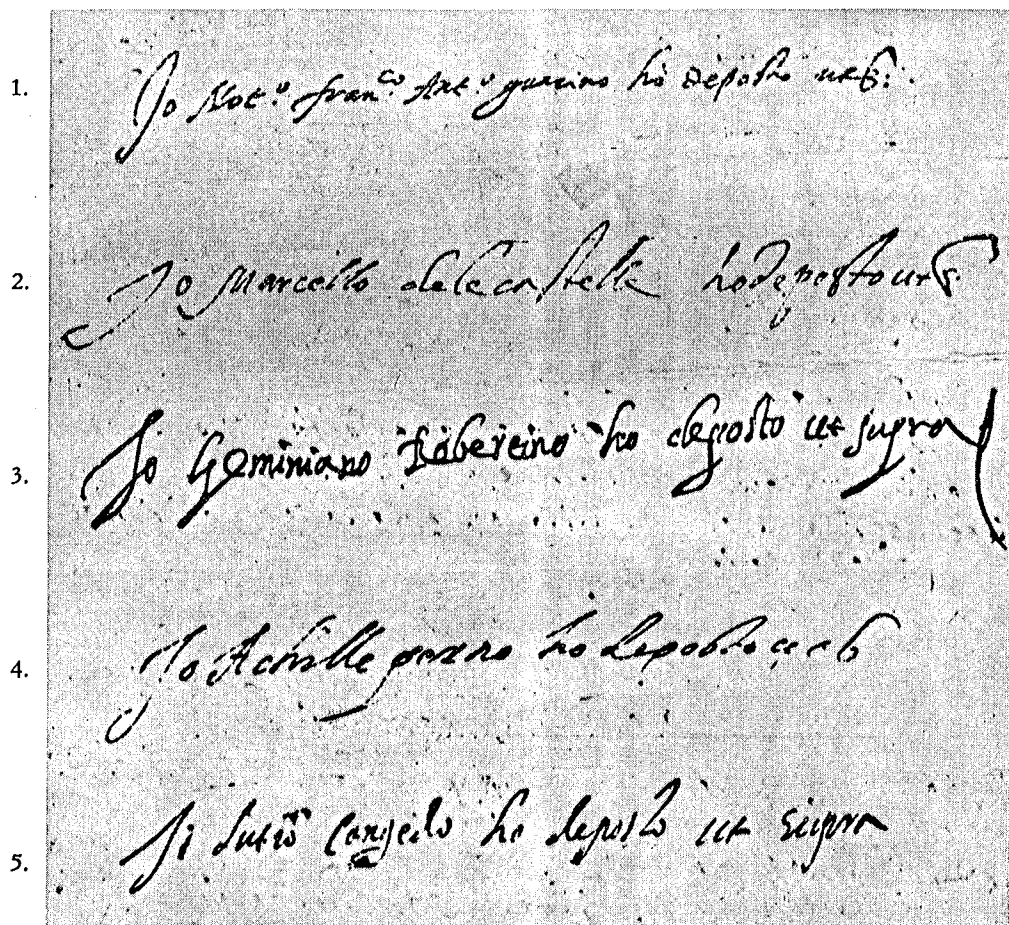 1. Jo Not.º fran.co Ant.º guarino hò deposto ut s.
2. Jo Marcello dele castelle ho deposto ut s.
3. Jo Geminiano ho deposto ut supra
4. Jo Achille ho deposto ut s
5. ho deposto ut supra